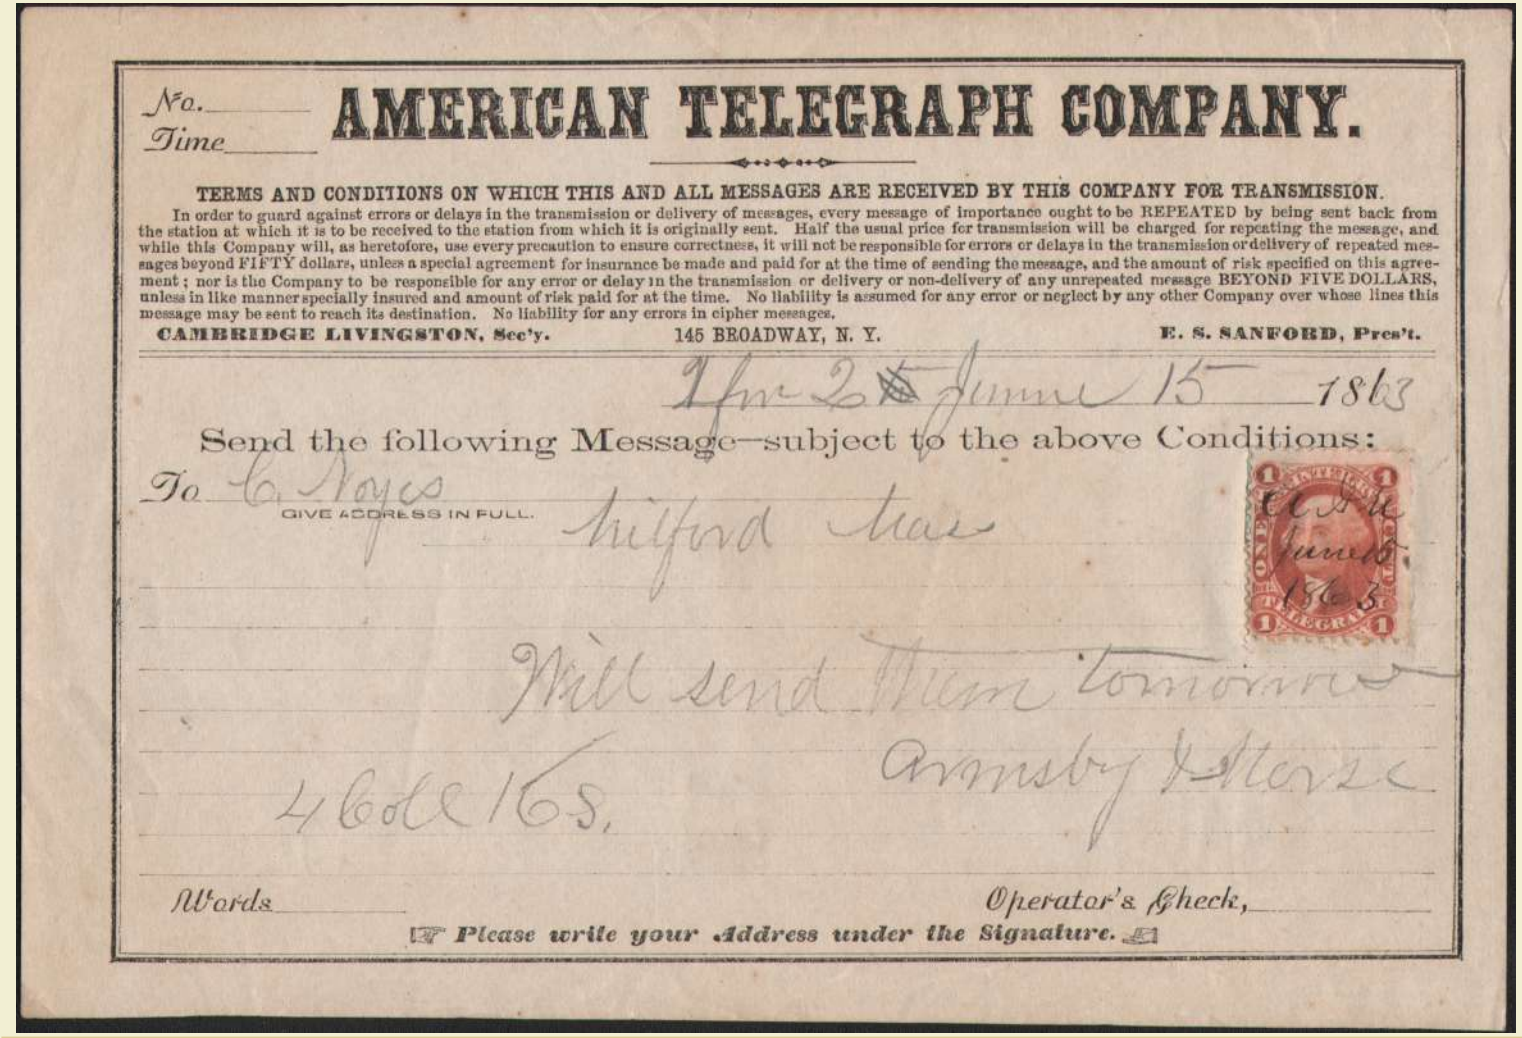 No.
Time
AMERICAN TELEGRAPH COMPANY.
TERMS AND CONDITIONS ON WHICH THIS AND ALL MESSAGES ARE RECEIVED BY THIS COMPANY FOR TRANSMISSION.
In order to guard against errors or delays in the transmission or delivery of messages, every message of importance ought to be REPEATED by being sent back from
the station at which it is to be received to the station from which it is originally sent. Half the usual price for transmission will be charged for repeating the message, and
while this Company will, as heretofore, use every precaution to ensure correctness, it will not be responsible for errors or delays in the transmission or delivery of repeated mes-
sages beyond FIFTY dollars, unless a special agreement for insurance be made and paid for at the time of sending the message, and the amount of risk specified on this agree-
ment; nor is the Company to be responsible for any error or delay in the transmission or delivery or non-delivery of any unrepeated message BEYOND FIVE DOLLARS,
unless in like manner specially insured and amount of risk paid for at the time. No liability is assumed for any error or neglect by any other Company over whose lines this
message may be sent to reach its destination. No liability for any errors in cipher messages.
CAMBRIDGE LIVINGSTON, Sec'y. 145 BROADWAY, N. Y. E. S. SANFORD, Pres't.
June 15 1863
Send the following Message—subject to the above Conditions:
To C. Noyes
GIVE ADDRESS IN FULL.
Milford Mas
1 1
ONE CENT
June 15
1863
TELEGRAPH
1 1
Will send them tomorrow
Armsby & Morse
4 Coll 16
Words
Operator's Check,
Please write your Address under the Signature.